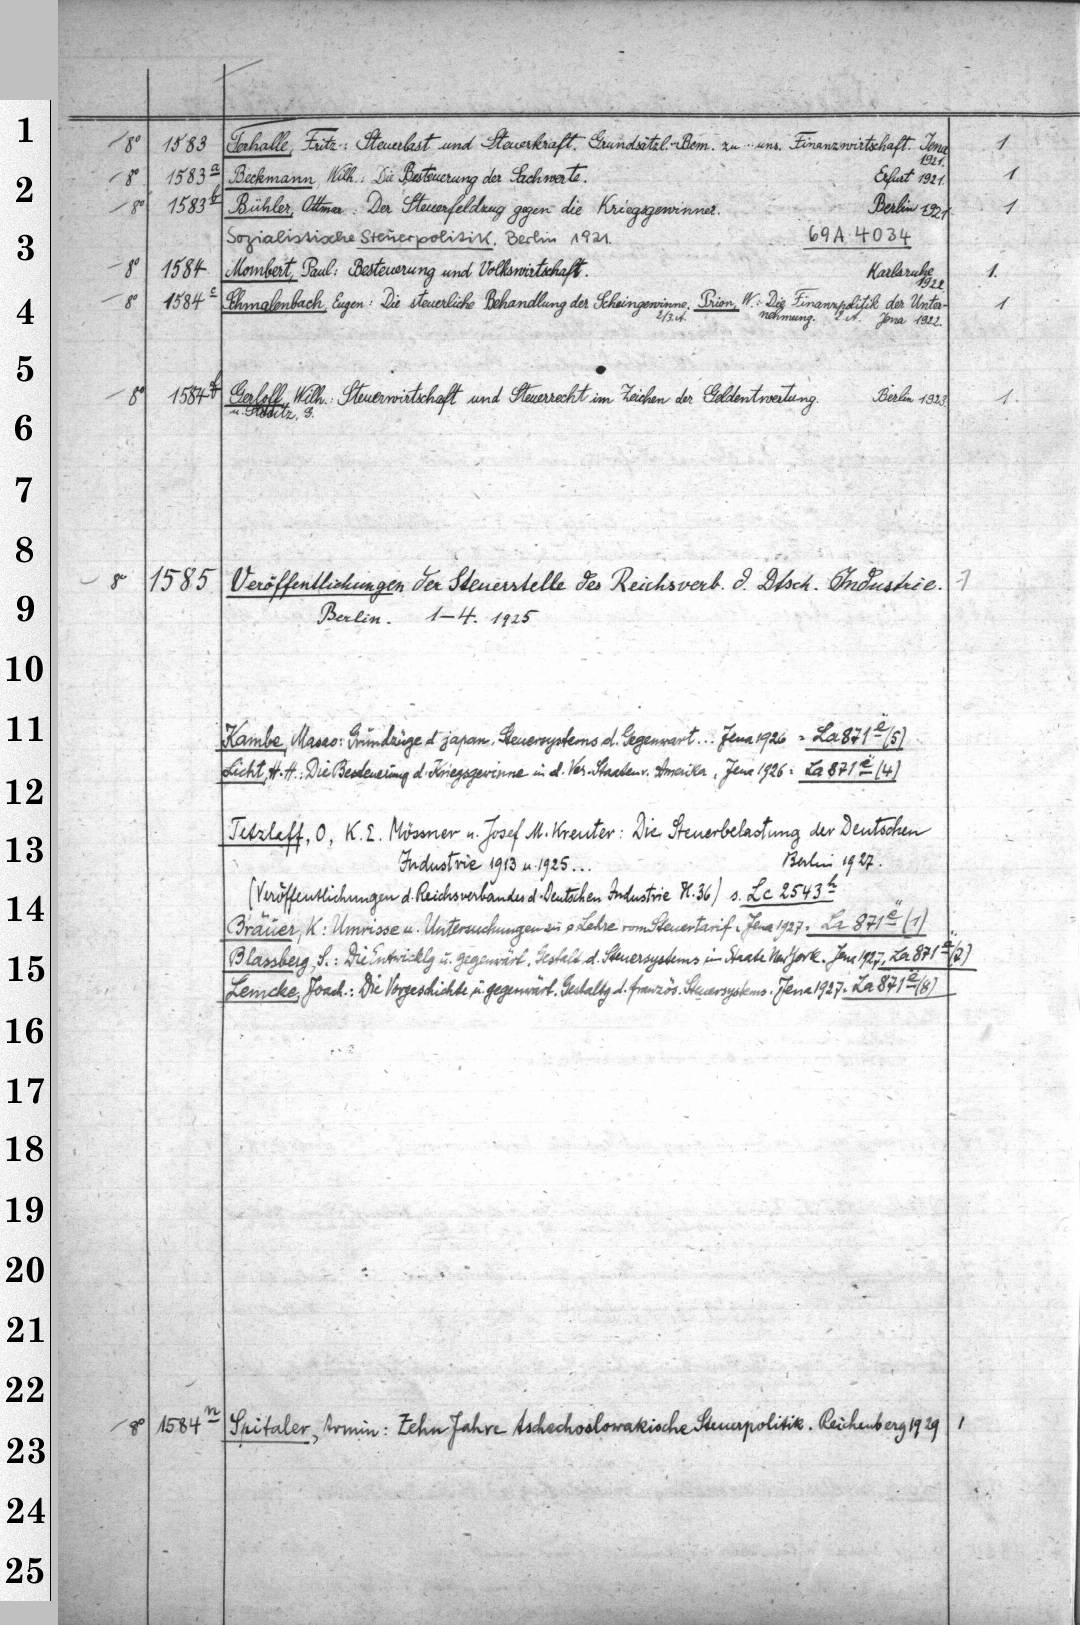 1
8° 1583 Terhalle, Fritz: Steuerlast und Steuerkraft. Grundsätzl. Bem. zu .. uns. Finanzwirtschaft. Jena 1
1921.
2
8° 1583a Beckmann, Wilh.: Die Besteuerung der Sachwerte. Erfurt 1921. 1
8° 1583b Bühler, Ottmar: Der Steuerfeldzug gegen die Kriegsgewinner. Berlin 1921 1
3
Sozialistische Steuerpolitik. Berlin 1921. 69A 4034
8° 1584 Mombert, Paul: Besteuerung und Volkswirtschaft. Karlsruhe 1.
1922
4
8° 1584c Schmalenbach, Eugen: Die steuerliche Behandlung der Scheingewinne. Prion, W.: Die Finanzpolitik der Unter- 1
2/3. A. nehmung. 2 A. Jena 1922.
5
8° 1584f Gerloff, Wilh.: Steuerwirtschaft und Steuerrecht im Zeichen der Geldentwertung. Berlin 1923. 1.
6
7
8
8° 1585 Veröffentlichungen der Steuerstelle des Reichsverb. d. Dtsch. Industrie. 1
9
Berlin. 1–4. 1925
10
11
Kambe, Masao: Grundzüge d japan. Steuersystems d. Gegenwart... Jena 1926 = La 871ë (5)
Licht, H. H.: Die Besteuerung d. Kriegsgewinne in d. Ver. Staaten v. Amerika. Jena 1926 = La 871ë (4)
12
Tetzlaff, O, K. E. Mössner u. Josef M. Kreuter: Die Steuerbelastung der Deutschen
13
Industrie 1913 u. 1925... Berlin 1927.
(Veröffentlichungen d. Reichsverbandes d. Deutschen Industrie H. 36) s. Lc 2543h
14
Bräuer, K: Umrisse u. Untersuchungen zu e Lehre vom Steuertarif. Jena 1927. La 871ë (1)
Blassberg, S.: Die Entwicklg u. gegenwärt. Gestalt d. Steuersystems im Staate New York. Jena 1927. La 871ë (2)
15
Lemcke, Joach.: Die Vorgeschichte u. gegenwärt. Gestaltg d. französ. Steuersystems. Jena 1927. La 871ë (8)
16
17
18
19
20
21
22
8° 1584n Spitaler, Armin: Zehn Jahre tschechoslowakische Steuerpolitik. Reichenberg 1929 1
23
24
25